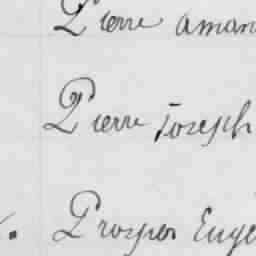 Pierre Aman
Pierre Joseph
Prosper Euge